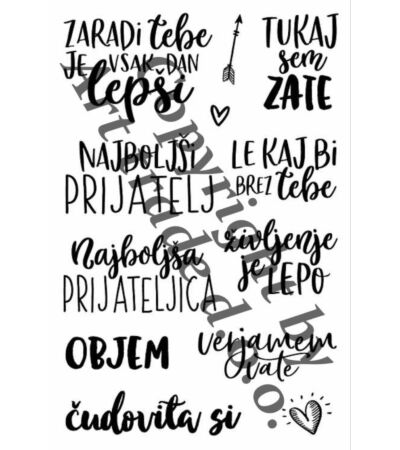 ZARADi tebe
JE VSAK DAN
lepši
TUKAJ
sem
ZATE
NAJBOLJŠI
PRIJATELJ
LE KAJ BI
BREZ tebe
Najboljša
PRIJATELJICA
življenje
je LEPO
OBJEM
verjamem
vate
čudovita si
Copyright by
Art Trade d.o.o.